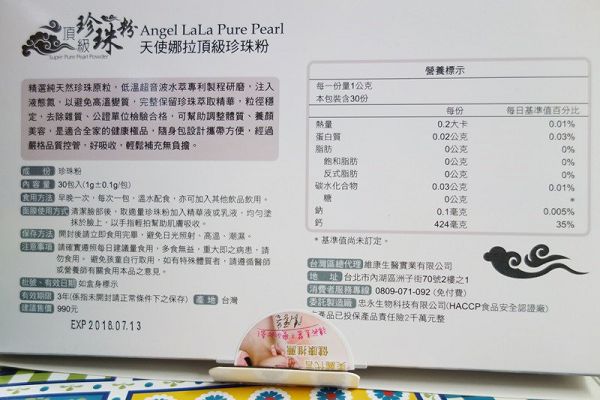 頂級 珍珠粉
Super Pure Pearl Powder
Angel LaLa Pure Pearl
天使娜拉頂級珍珠粉
精選純天然珍珠原粒，低溫超音波水萃專利製程研磨，注入
液態氮，以避免高溫變質，完整保留珍珠萃取精華，粒徑穩
定，去除雜質，公證單位檢驗合格，可幫助調整體質、養顏
美容，是適合全家的健康極品，隨身包設計攜帶方便，經過
嚴格品質控管，好吸收，輕鬆補充無負擔。
成 份 珍珠粉
內 容 量 30包入(1g±0.1g/包)
食用方法 早晚一次，每次一包，溫水配食，亦可加入其他飲品飲用。
面膜使用方式 清潔臉部後，取適量珍珠粉加入精華液或乳液，均勻塗
抹於臉上，以手指輕拍幫助肌膚吸收。
保存方法 開封後請立即食用完畢，避免日光照射、高溫、潮濕。
注意事項 請確實遵照每日建議量食用，多食無益，重大即之病患，請
勿食用。避免孩童自行取用，如有特殊體質者，請遵循醫師
或營養師有關食用本品之意見。
批號、有效日期 如盒身標示
有效期限 3年(係指未開封請正常條件下之保存) 產 地 台灣
建議售價 990元
EXP 2018.07.13
營養標示
每一份量1公克
本包裝含30份
每份 每日基準值百分比
熱量 0.2大卡 0.01%
蛋白質 0.02公克 0.03%
脂肪 0公克
飽和脂肪 0公克
反式脂肪 0公克
碳水化合物 0.03公克 0.01%
糖 0公克 *
鈉 0.1毫克 0.005%
鈣 424毫克 35%
* 基準值尚未訂定。
台灣區總代理 維康生醫實業有限公司
地 址 台北市內湖區洲子街70號2樓之1
消費者服務專線 0809-071-092 (免付費)
委託製造廠 忠永生物科技有限公司(HACCP食品安全認證廠)
本產品已投保產品責任險2千萬元整
美麗代言
健康推薦